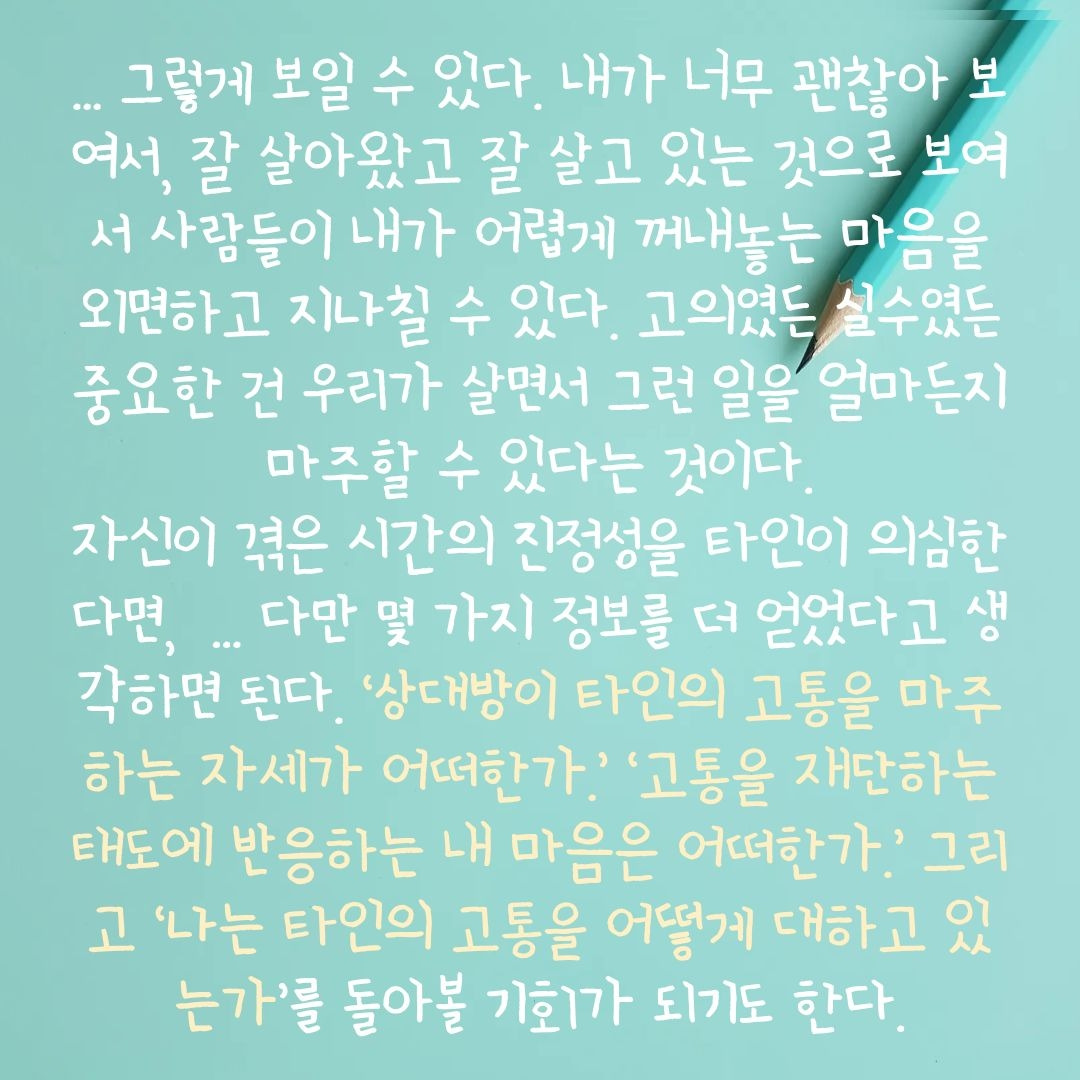 ... 그렇게 보일 수 있다. 내가 너무 괜찮아 보
여서, 잘 살아왔고 잘 살고 있는 것으로 보여
서 사람들이 내가 어렵게 꺼내놓는 마음을
외면하고 지나칠 수 있다. 고의였든 실수였든
중요한 건 우리가 살면서 그런 일을 얼마든지
마주할 수 있다는 것이다.
자신이 겪은 시간의 진정성을 타인이 의심한
다면, ... 다만 몇 가지 정보를 더 얻었다고 생
각하면 된다. ‘상대방이 타인의 고통을 마주
하는 자세가 어떠한가.’ ‘고통을 재단하는
태도에 반응하는 내 마음은 어떠한가.’ 그리
고 ‘나는 타인의 고통을 어떻게 대하고 있
는가’를 돌아볼 기회가 되기도 한다.